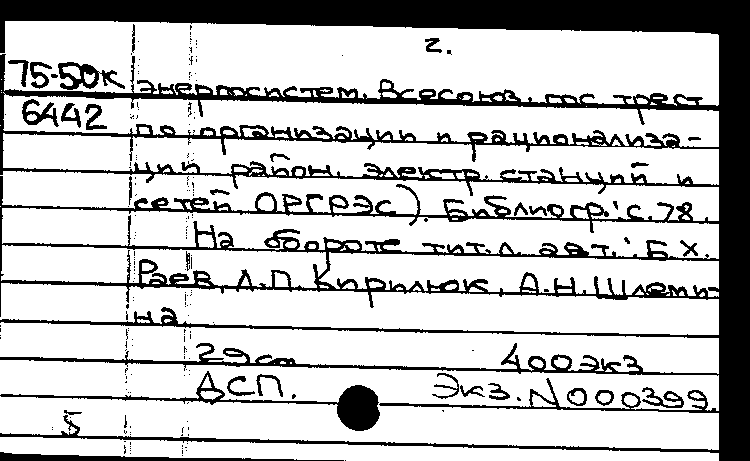 2.
75-50к энергосистем. Всесоюз. гос. трест
6442 по организации и рационализа-
ции район. электр. станций и
сетей ОРГРЭС). Библиогр.: с. 78.
На обороте тит. л. авт.: Б.Х.
Раев, Л.П. Кирилюк, А.Н. Шлеми-
на.
29 см 400 экз
ДСП. Экз. N 000399.
5